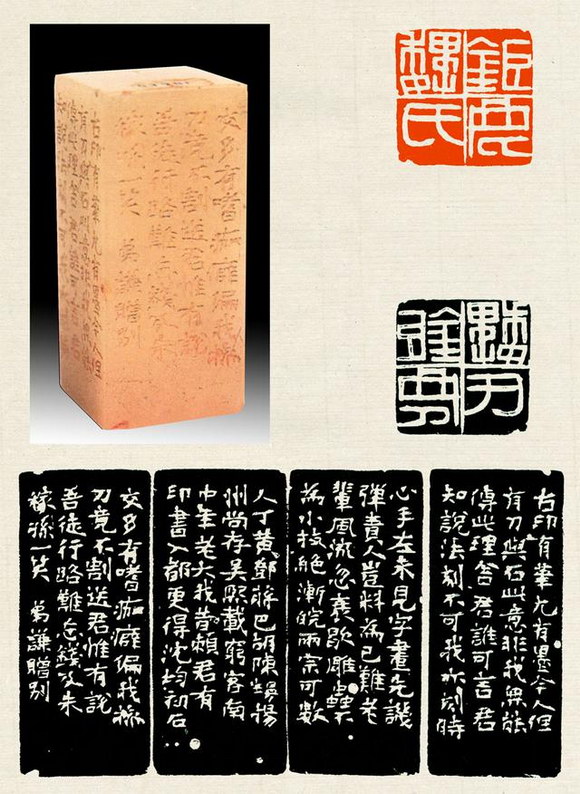 鉅鹿
魏氏
古印有筆尤有墨今人但
有刀與石此意非我無能
傳此理舍君誰可言君
知說法刻不可我亦刻時
心手左未見字畫先譏
彈責人豈料為己難老
輩風流忽衰歇雕蟲
為小技絕漸皖兩宗可數
人丁黃鄧蔣巴胡陳揚
州尚存吳熙載窮客南
中年老大我昔賴君有
印書入都更得沈均初石
交多有嗜痂癖偏我操
刀竟不割送君惟有說
吾徒行路難忘錢及朱
稼孫一笑 弟謙贈別